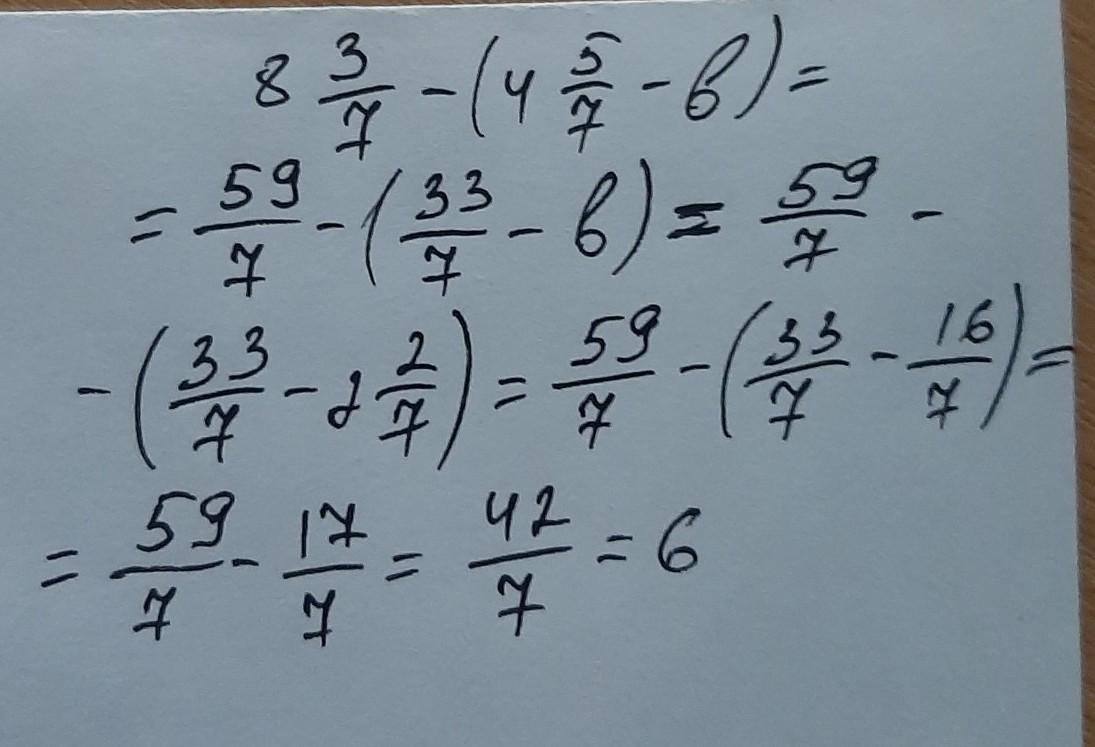 8 3/7 - (4 5/7 - в) =
= 59/7 - (33/7 - в) = 59/7 -
- (33/7 - 2 2/7) = 59/7 - (33/7 - 16/7) =
= 59/7 - 17/7 = 42/7 = 6